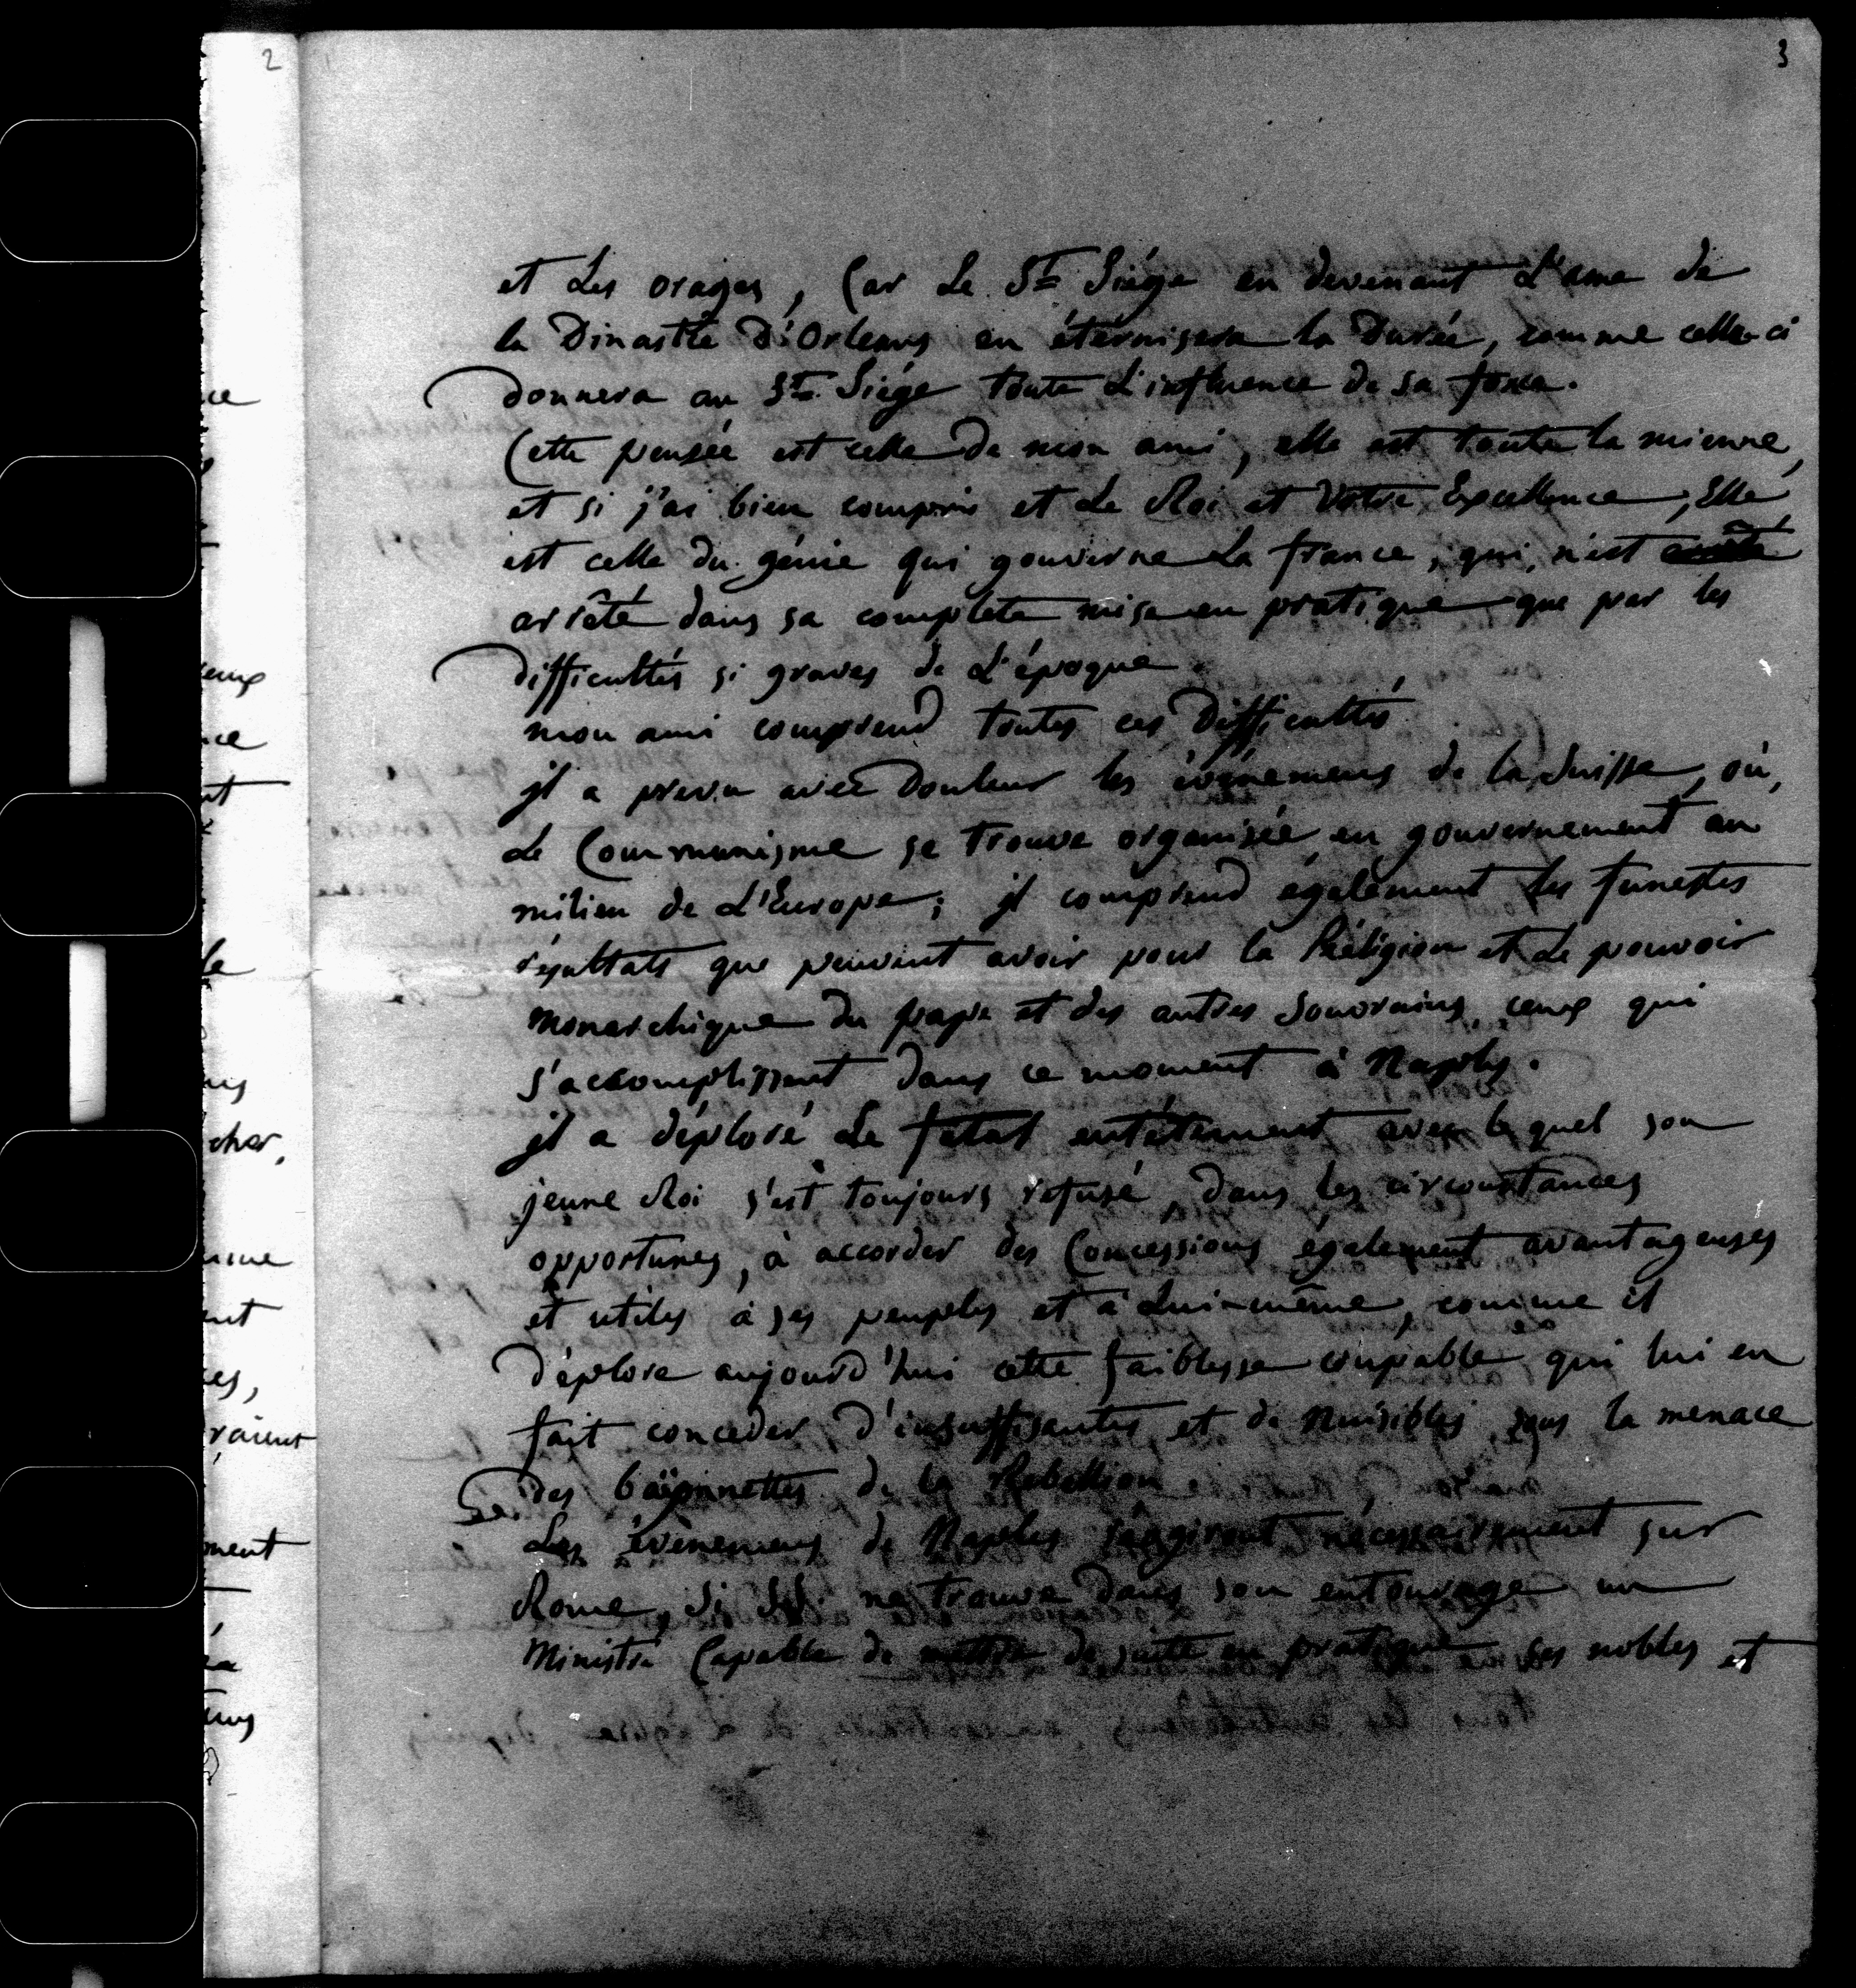 2
3
et Les orages, Car Le St Siége en devenant L'ame de
la Dinastie d'Orleans en éternisera la Durée, comme celle-ci
donnera au St Siége toute L'influence de sa force.
Cette pensée est celle de mon ami, elle est toute la mienne,
et si j'ai bien compris et Le Roi et Votre Excellence, Elle
est celle du génie qui gouverne La france, qui, n'est
arrêté dans sa complete mise en pratique que par les
difficultés si graves de L'époque.
mon ami comprend toutes ces Difficultés
il a prevu avec Douleur les événemens de la Suisse, où,
Le Communisme se trouve organisée en gouvernement au
milieu de L'Europe; il comprend également les funestes
résultats que peuvent avoir pour la Réligion et Le pouvoir
monarchique du pape et des autres Souvrains, ceux qui
s'accomplissent dans ce moment à Naples.
il a déploré Le fatal entêtement avec lequel son
jeune Roi s'est toujours refusé, dans les circonstances
opportunes, à accorder des Concessions également avantageuses
et utiles à ses peuples et à Lui-même, comme il
déplore aujourd'hui cette faiblesse coupable qui lui en
fait conceder d'insuffisantes et de Nuisibles sous la menace
des baïonnettes de la Rebellion
Les évènemens de Naples réagiront nécessairement sur
Rome, Si S.S. ne trouve dans son entourage un
Ministre Capable de mettre de suite en pratique ses nobles et